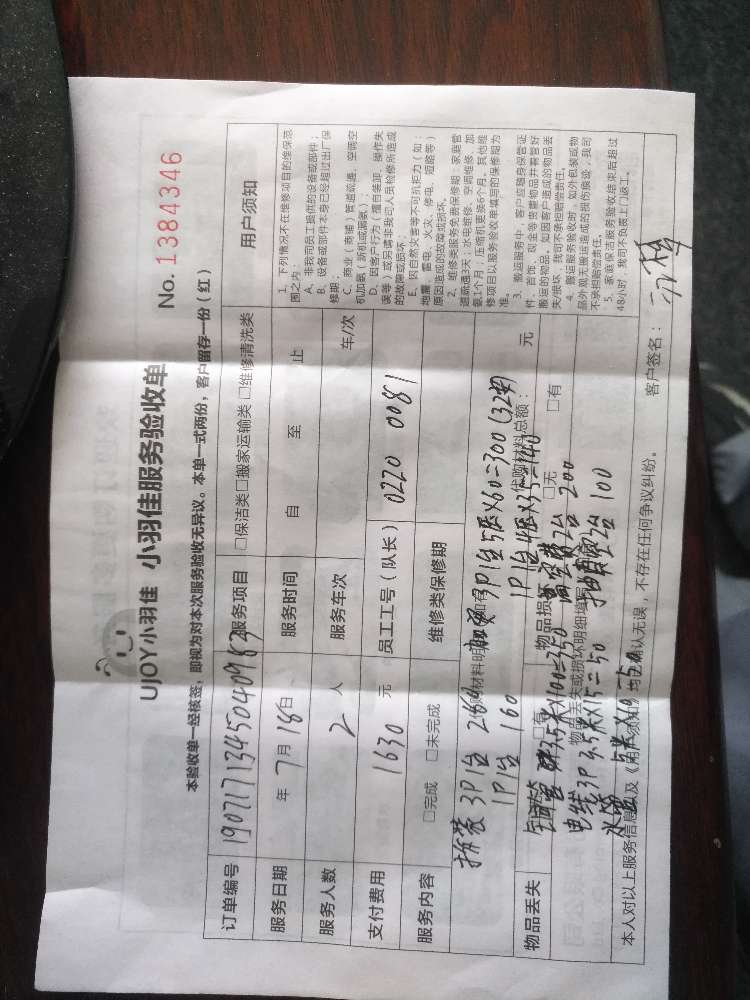 UJOY小羽佳 小羽佳服务验收单 No. 1384346
本验收单一经核签，即视为对本次服务验收无异议。本单一式两份，客户留存一份（红）
订单编号 190717134504098 服务项目 □保洁类□搬家运输类□维修清洗类
服务日期 年 7月18日 服务时间 自 至 止
服务人数 2 人 服务车次 车/次
支付费用 1630 元 员工工号（队长） 0220 0081
服务内容 □完成 □未完成 维修类保修期
拆装 3P1台 280 加 3P1台 5 X60=300(32#)
1P1台 160 1P1台 4 X35=140
代购材料总额： 元
物品丢失 □有 物品损坏 □无 □有
X100=350 高空 2台 200
物品丢失或损坏明细填写
电线3P 3.5米X15=50 抽真空2台 100
水管 5米X10=50
本人对以上服务信息以及《用户须知》均已确认无误，不存在任何争议纠纷。
客户签名：
用户须知
1、下列情况不在维修项目的维保范
围之内：
A、非我司员工提供的设备或部件；
B、设备或部件本身已经超过出厂保
修期；
C、商业（商铺）管道疏通、空调空
机加氨（新机或漏氨）；
D、因客户行为（擅自装卸、操作失
误等）或另请非我司人员检修所造成
的故障或损坏；
E、因自然灾害等不可抗拒力（如：
地震、雷电、火灾、停电、短路等）
原因造成的故障或损坏。
2、维修类服务免费保修期：家庭管
道疏通3天；水电维修、空调维修、加
氨1个月；压缩机更换6个月，其他维
修项目以服务验收单填写的保修期为
准。
3、搬运服务中，客户应随身保管证
件、首饰、现金等贵重物品并看管好
搬运的物品，如因客户造成的物品丢
失/损坏，我司不承担赔偿责任。
4、搬运服务验收时，如外包装或物
品外观无搬运造成的损伤痕迹，我司
不承担赔偿责任。
5、家庭保洁服务验收结束后超过
48小时，我司不负责上门返工。